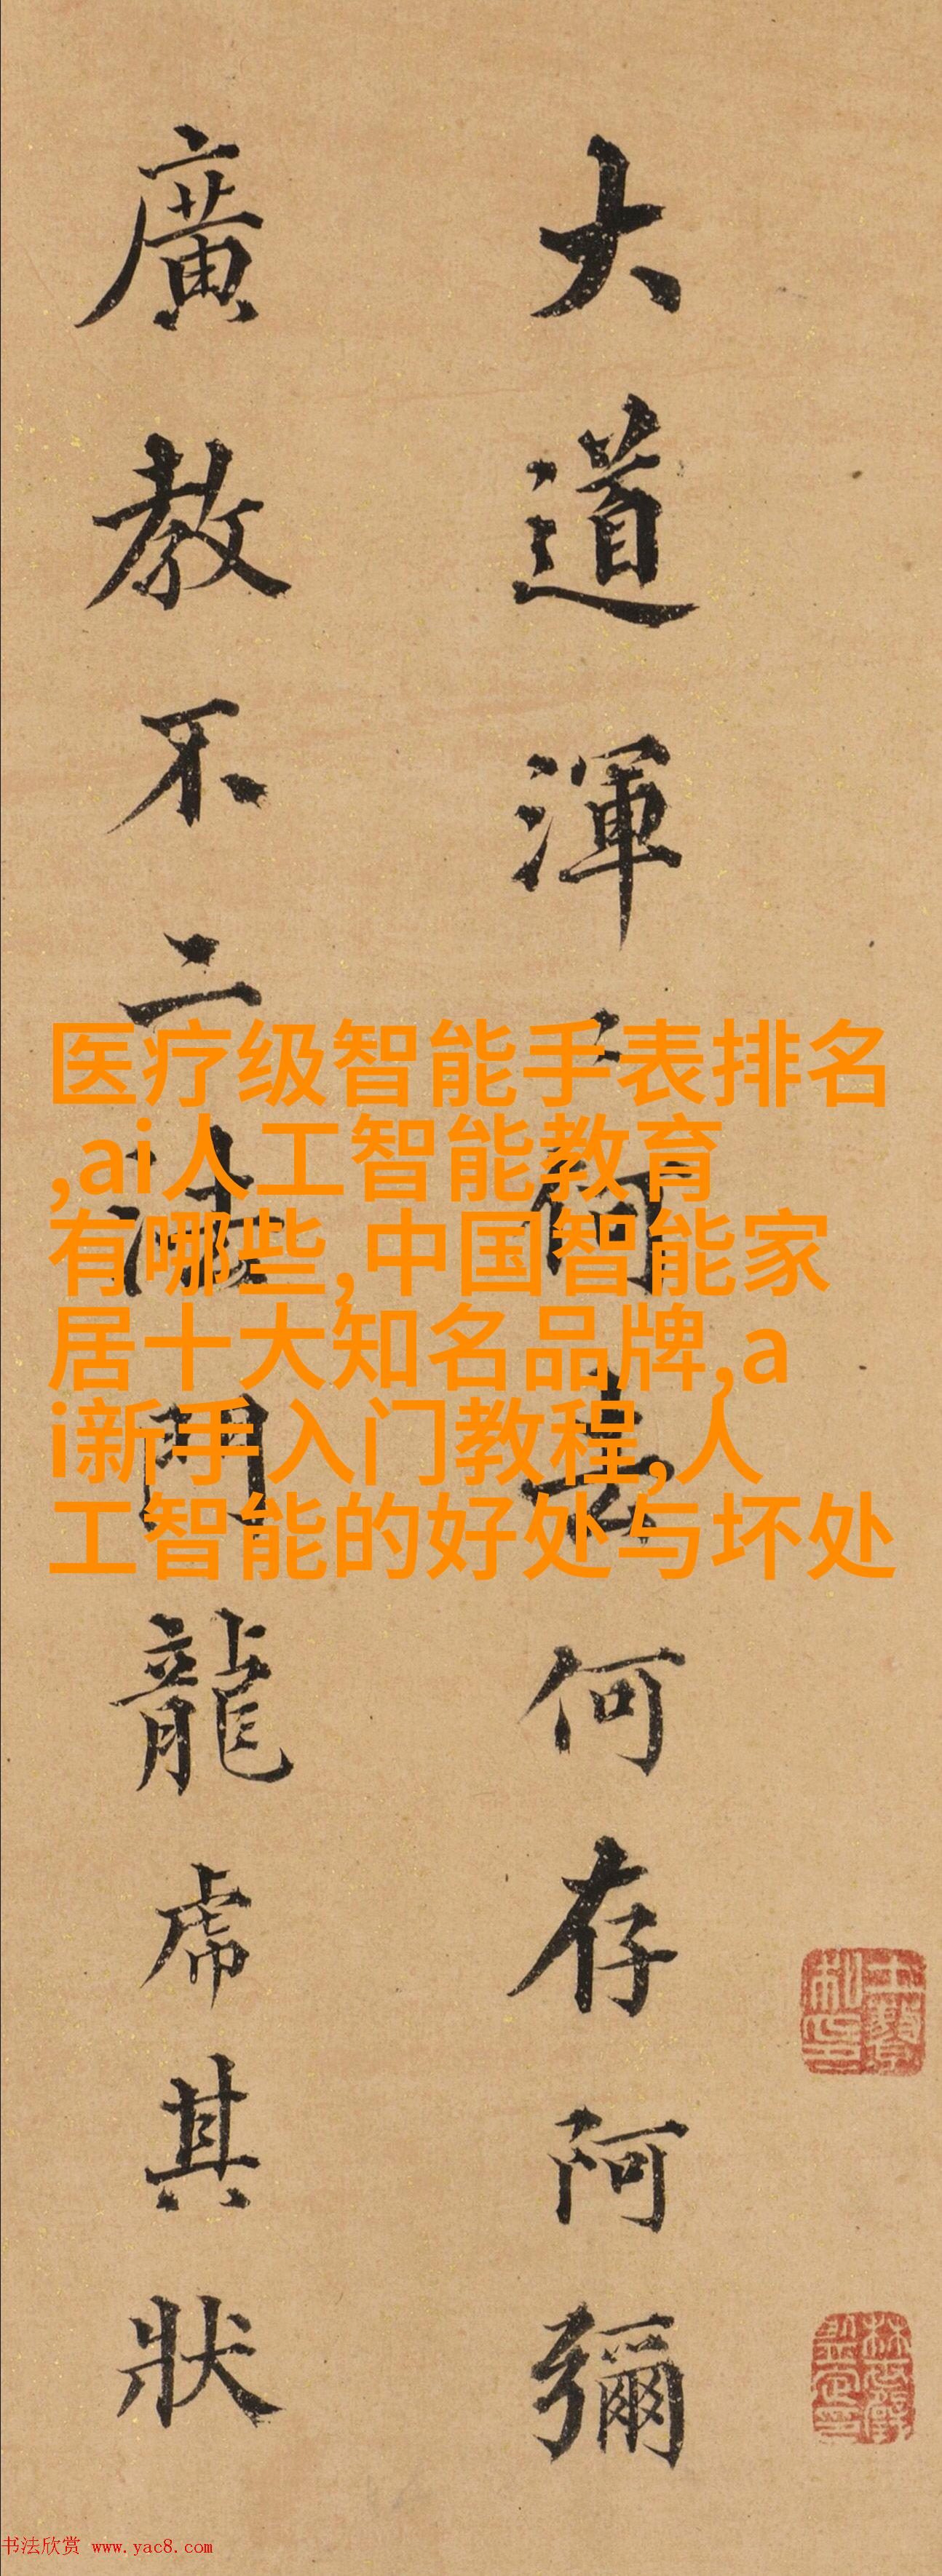 大道渾〻何去何存阿彌
廣教不二法門龍虎其狀
医疗级智能手表排名
,ai人工智能教育
有哪些,中国智能家
居十大知名品牌,a
i新手入门教程,人
工智能的好处与坏处
书法欣赏 www.yac8.com